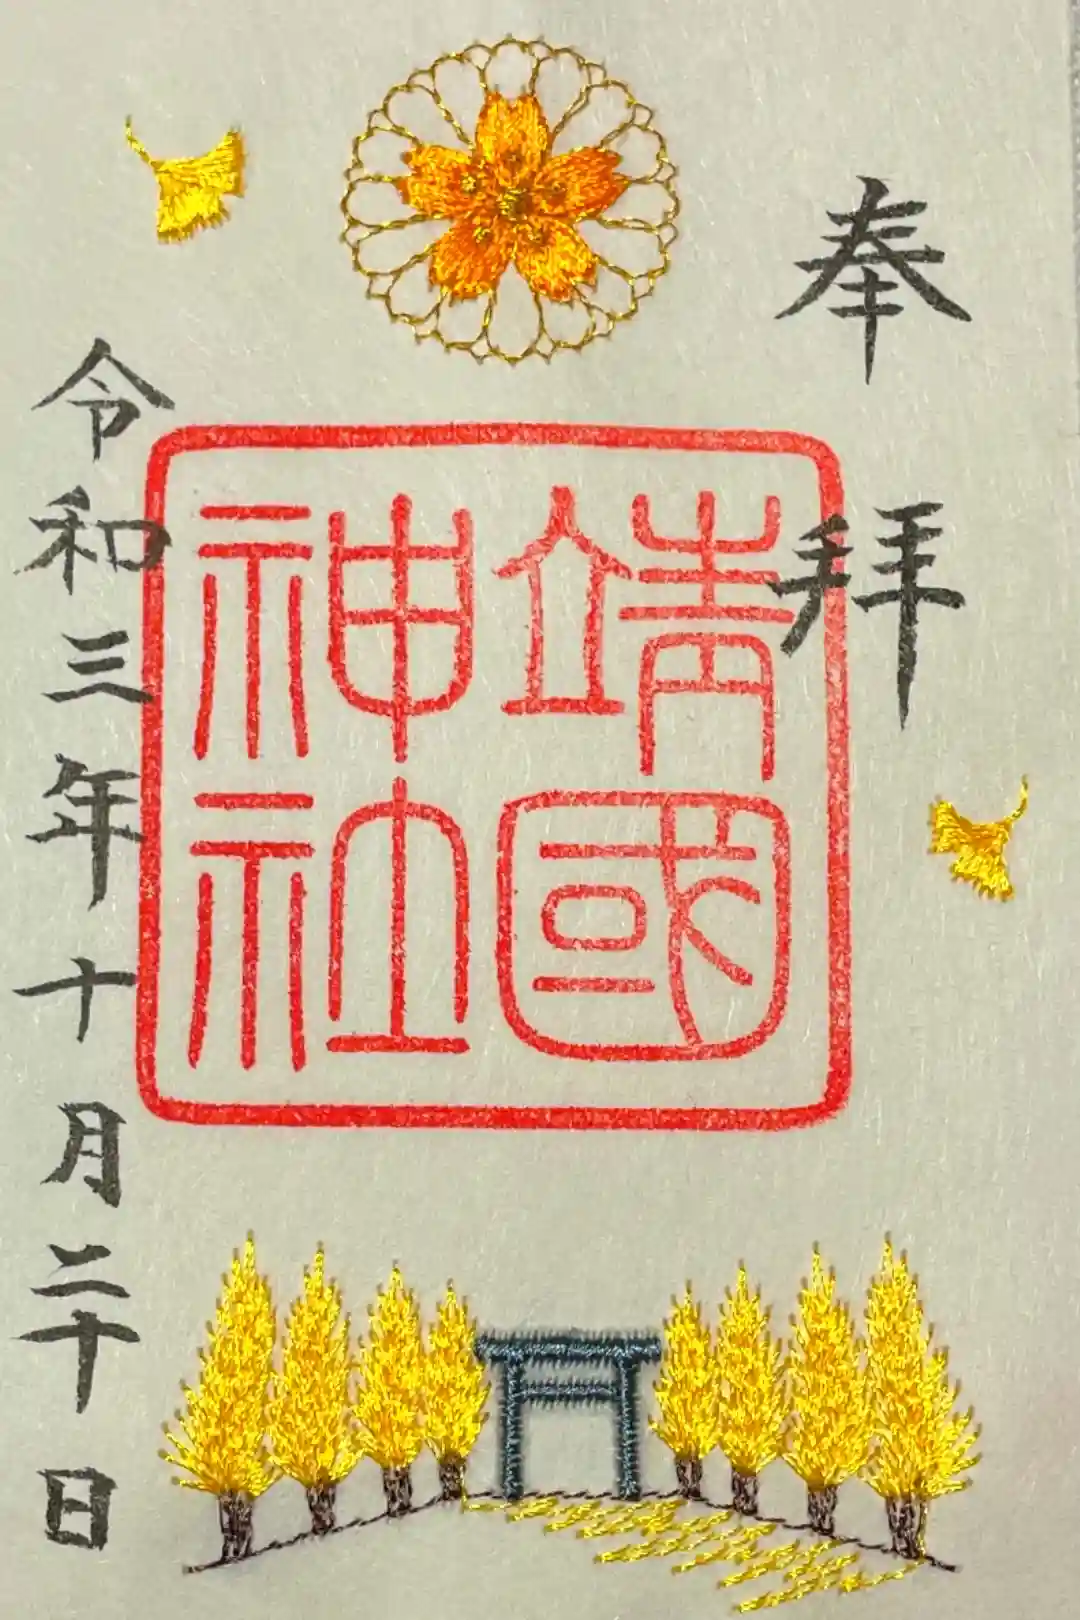 奉拝
靖國
神社
令和三年十月二十日